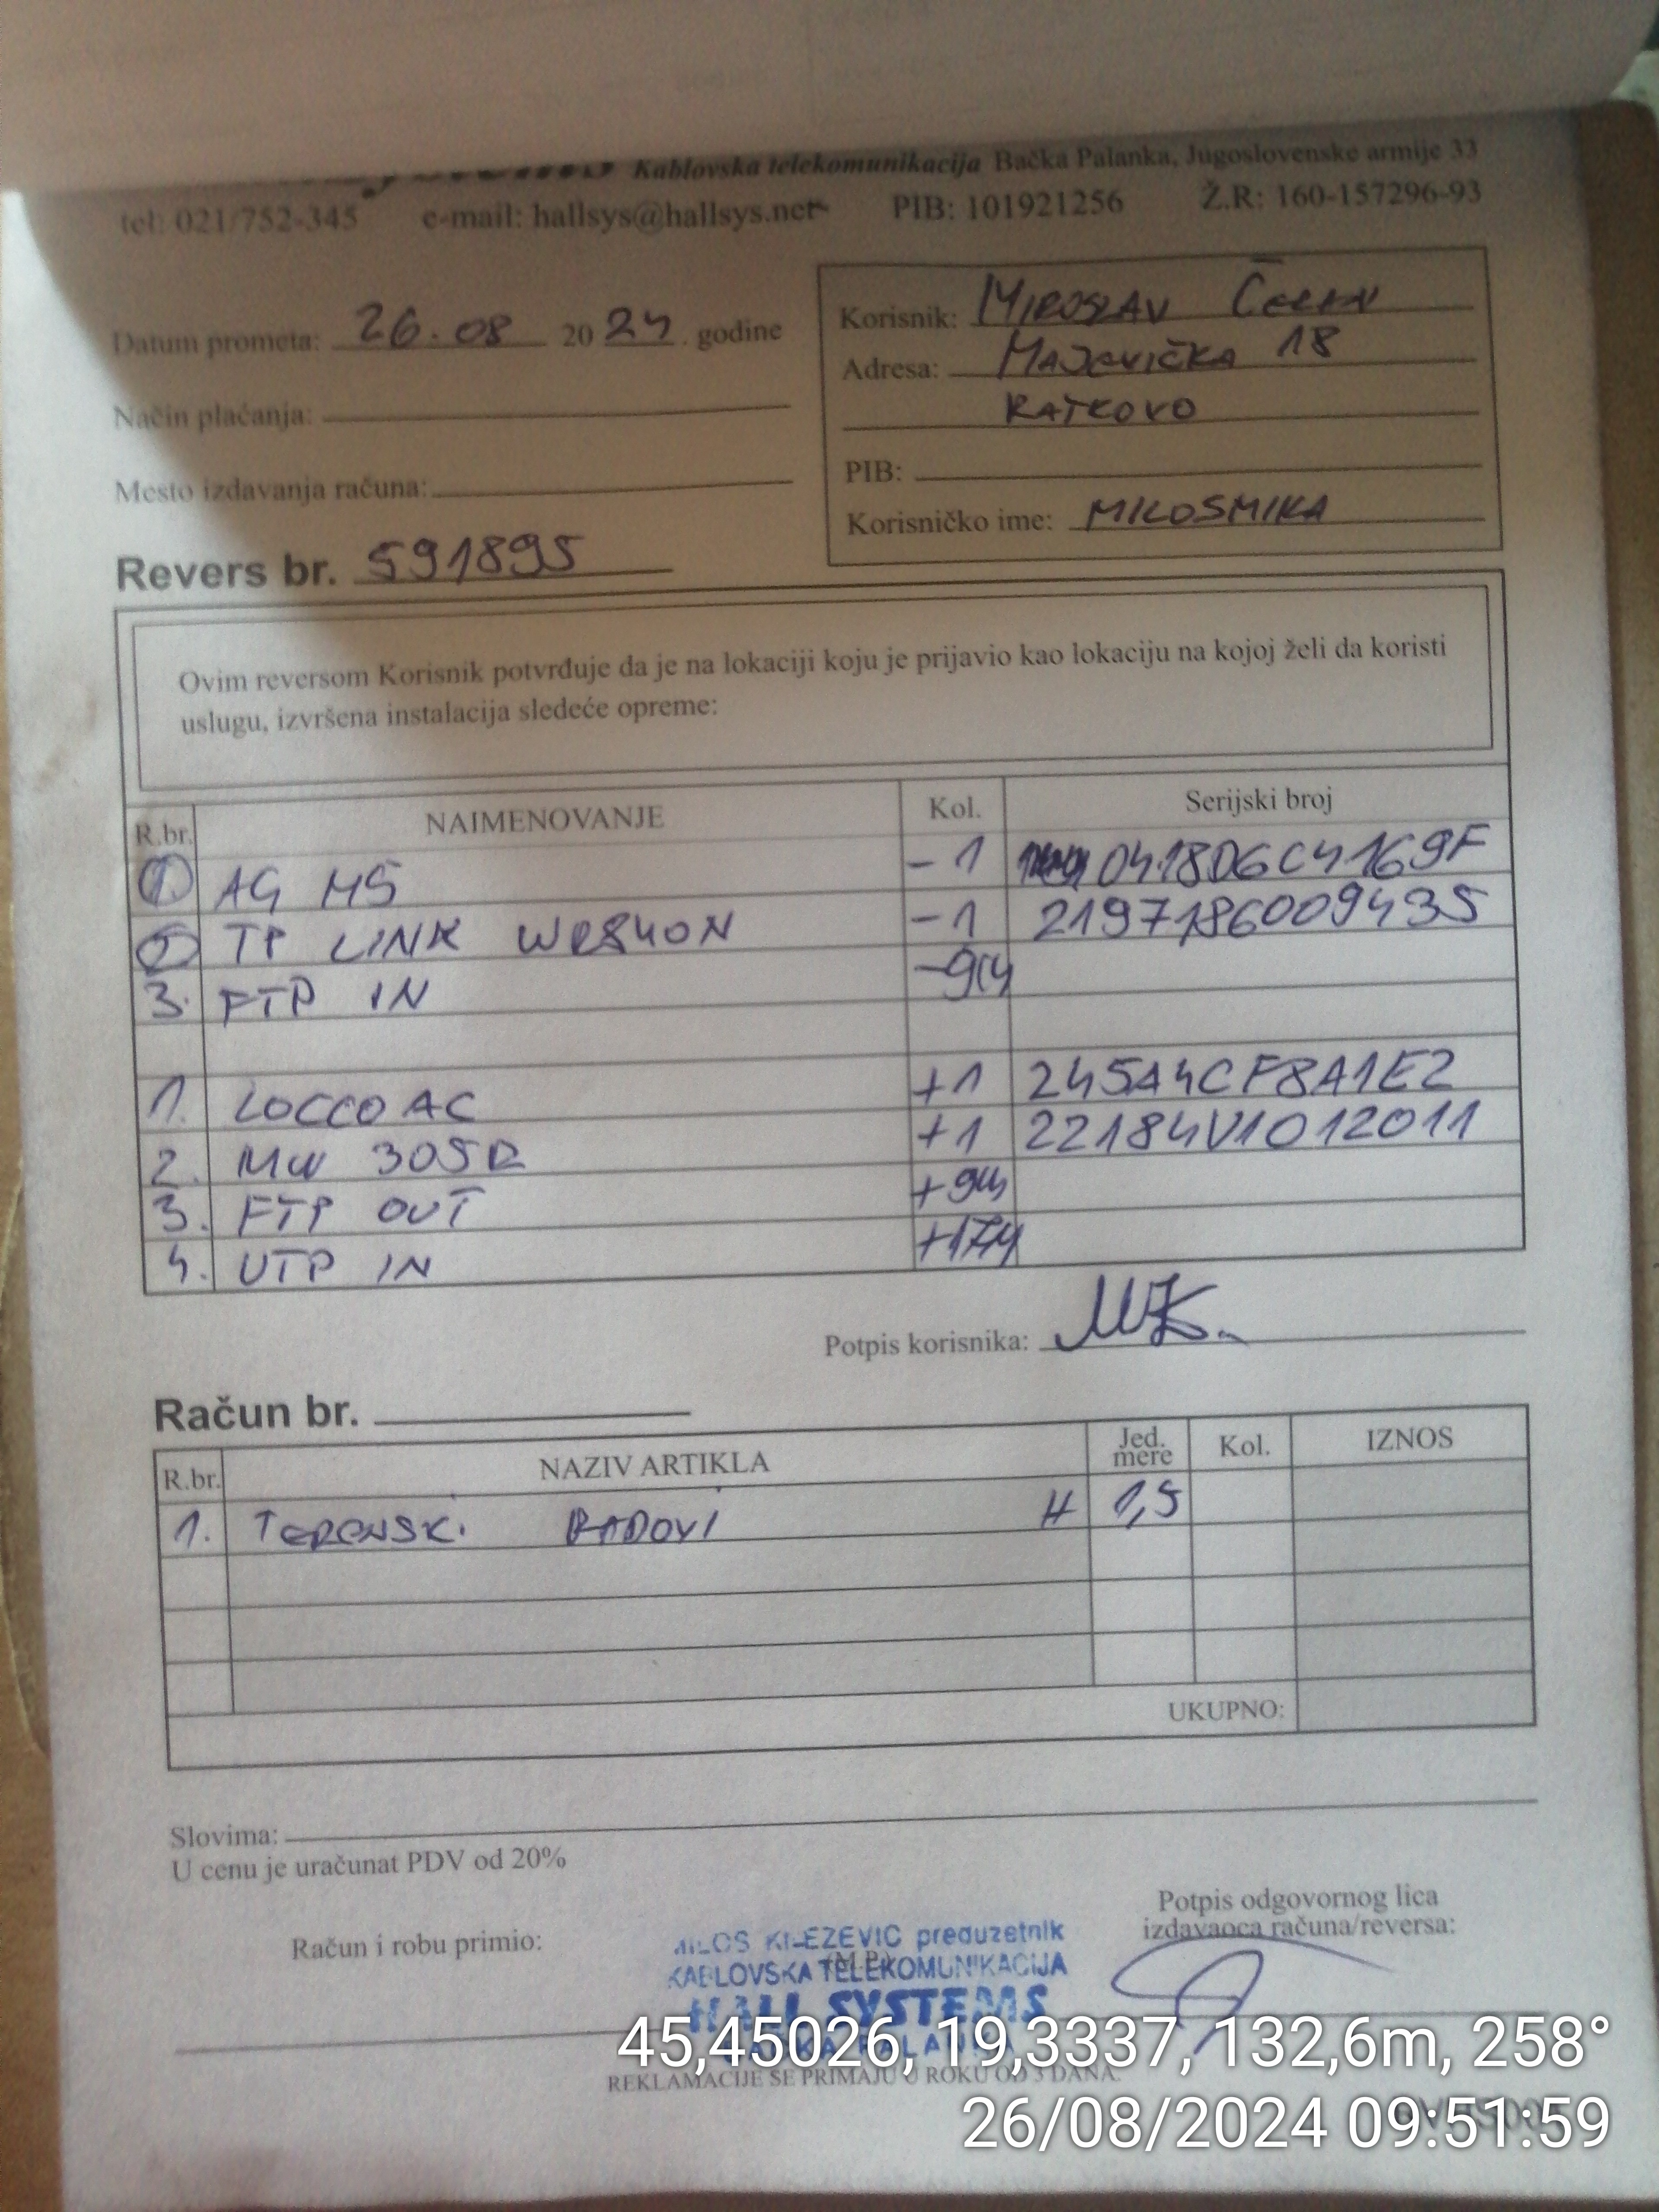 Kablovska telekomunikacija Bačka Palanka, Jugoslovenske armije 33
tel: 021/752-345 e-mail: hallsys@hallsys.net PIB: 101921256 Ž.R: 160-157296-93
Datum prometa: 26.08 2024. godine
Način plaćanja:
Mesto izdavanja računa:
Korisnik: MIROSLAV
Adresa: MAJEVIČKA 18
RATKOVO
PIB:
Korisničko ime: MILOSMIKA
Revers br. 591895
Ovim reversom Korisnik potvrđuje da je na lokaciji koju je prijavio kao lokaciju na kojoj želi da koristi
uslugu, izvršena instalacija sledeće opreme:
R.br. NAIMENOVANJE Kol. Serijski broj
1. AG M5 -1 0418D6C4169F
2. TP LINK WR840N -1 2197186009435
3. FTP IN
1. LOCCO AC +1 245A4CF8A1E2
2. MW 305R +1 22184V1012011
3. FTP OUT
4. UTP IN
Potpis korisnika:
Račun br.
R.br. NAZIV ARTIKLA Jed. mere Kol. IZNOS
1. TERENSKI RADOVI H 1,5
UKUPNO:
Slovima:
U cenu je uračunat PDV od 20%
Račun i robu primio:
Potpis odgovornog lica
izdavaoca računa/reversa:
preduzetnik
KABLOVSKA TELEKOMUNIKACIJA
(M.P.)
HALL SYSTEMS
BAČKA PALANKA
REKLAMACIJE SE PRIMAJU U ROKU OD 3 DANA.
45,45026, 19,3337, 132,6m, 258°
26/08/2024 09:51:59